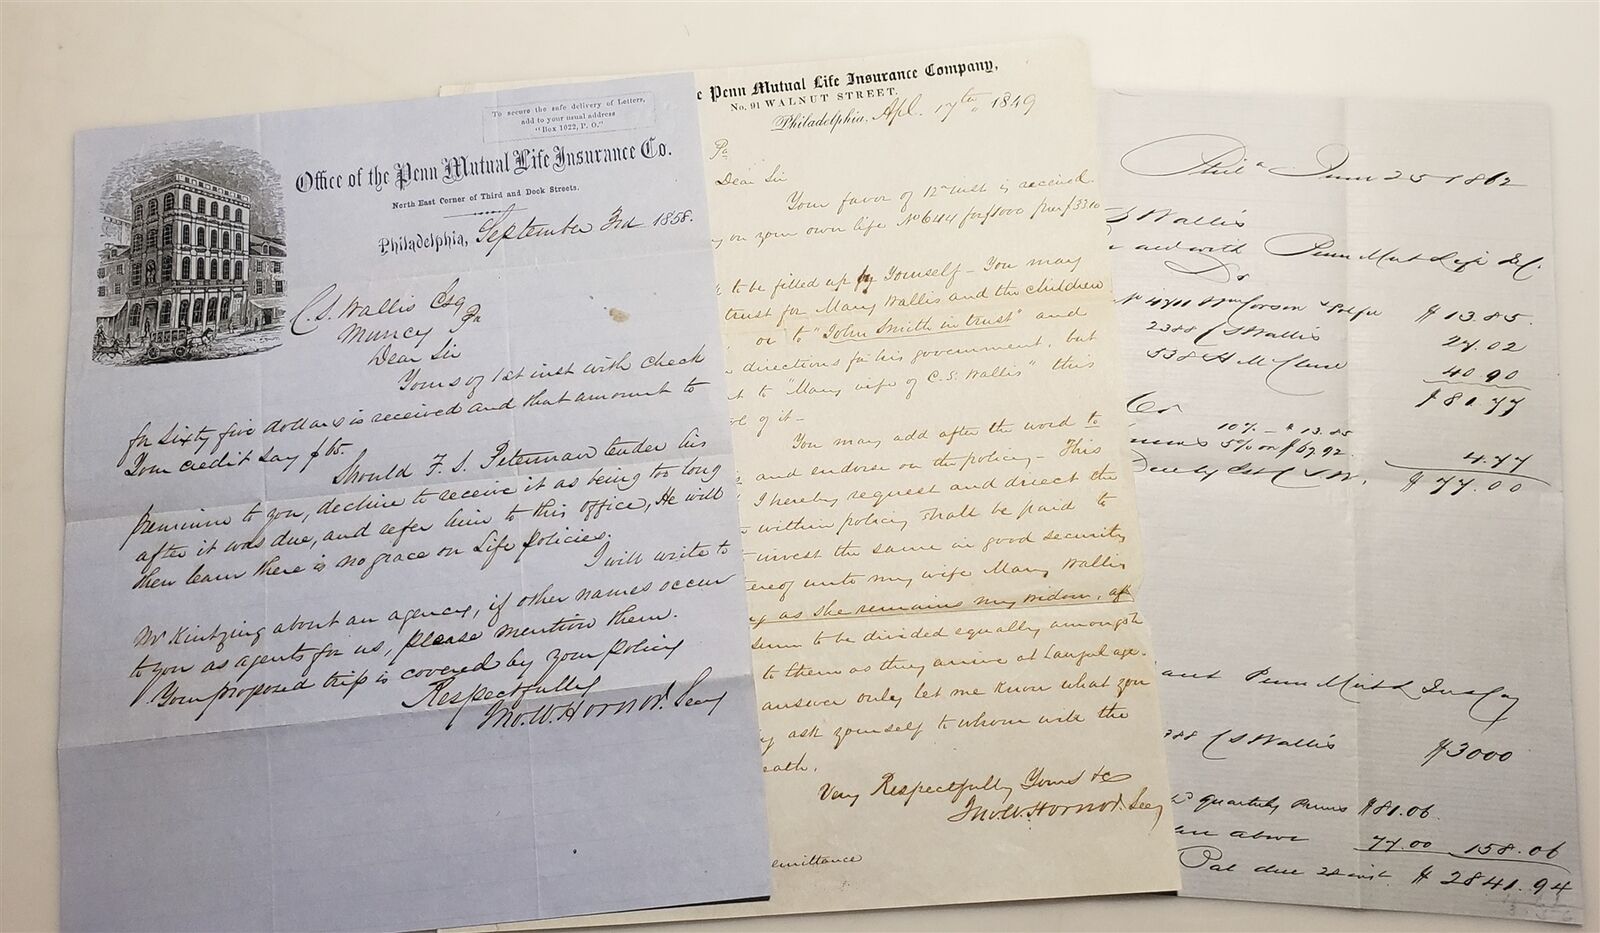 To secure the safe delivery of Letters,
add to your usual address
"Box 1022, P. O."
Office of the Penn Mutual Life Insurance Co.
North East Corner of Third and Dock Streets.
Philadelphia, September 3rd 1858.
C. S. Wallis Esq
Muncy Pa
Dear Sir
Yours of 1st inst with check
for Sixty five dollars is received and that amount to
Your credit say $65.
Should F. S. Peterman tender his
Premium to you, decline to receive it as being too long
after it was due, and refer him to this office, He will
then learn there is no grace on Life policies.
I will write to
Mr Kintzing about an agency, if other names occur
to you as agents for us, please mention them.
Your proposed trip is covered by your policy
Respectfully
Jno. W. Hornor. Secy
e Penn Mutual Life Insurance Company,
No. 91 WALNUT STREET.
Philadelphia, Apl. 17th 1849
Pa
Dear Sir
Your favor of 12th inst is received
on your own life No 644 for $1000
to be filled up by Yourself - You may
trust for Mary Wallis and the children
or to "John Smith in trust" and
directions for his government, but
to "Mary wife of C. S. Wallis" this
of it -
You may add after the word to
and endorse on the policy - This
I hereby request and direct the
within policy shall be paid to
invest the same in good security
unto my wife Mary Wallis
as she remains my widow, aft
to be divided equally amongst
to them as they arrive at Lawful age.
answer only let me know what you
ask yourself to whom will the
eath.
Very Respectfully Yours &c
Jno. W. Hornor. Secy
emittance
Phila June 25 1862
S Wallis
with Penn Mut Life
Dr
$13.85
2388 C S Wallis 27.02
538 H McClure 40.90
$81.77
Cr
10% - $13.85
5% on $67.92 4.77
$77.00
Penn Mutl Ins Coy
388 C S Wallis $3000
quarterly Prems $81.06
above 77.00 158.06
Bal due 28 inst $2841.94